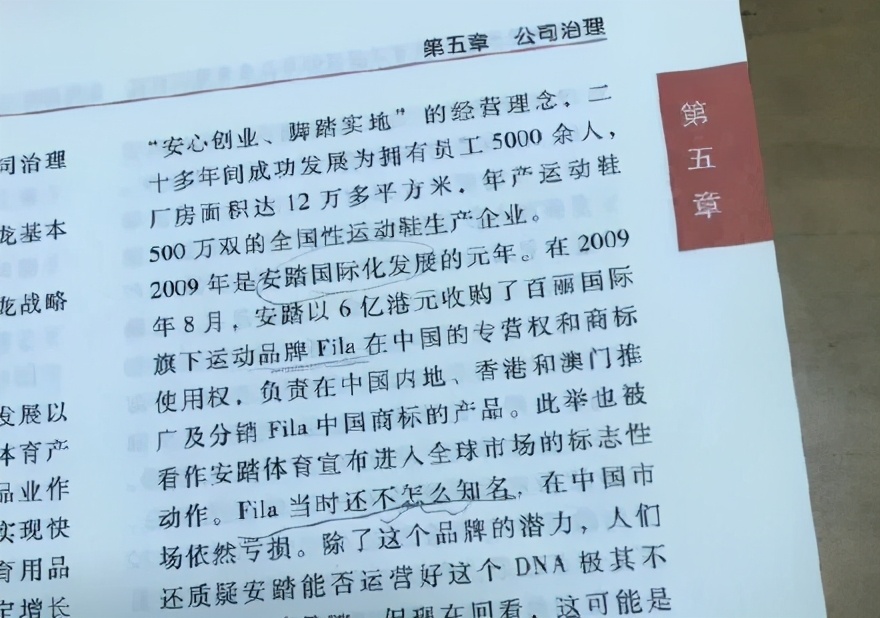 第五章 公司治理
第五章
司治理
基本
战略
发展以
体育产
品业作
实现快
育用品
定增长
“安心创业、脚踏实地”的经营理念，二
十多年间成功发展为拥有员工 5000 余人，
厂房面积达 12 万多平方米，年产运动鞋
500 万双的全国性运动鞋生产企业。
2009 年是安踏国际化发展的元年。在 2009
年 8 月，安踏以 6 亿港元收购了百丽国际
旗下运动品牌 Fila 在中国的专营权和商标
使用权，负责在中国内地、香港和澳门推
广及分销 Fila 中国商标的产品。此举也被
看作安踏体育宣布进入全球市场的标志性
动作。Fila 当时还不怎么知名，在中国市
场依然亏损。除了这个品牌的潜力，人们
还质疑安踏能否运营好这个 DNA 极其不
但现在回看，这可能是